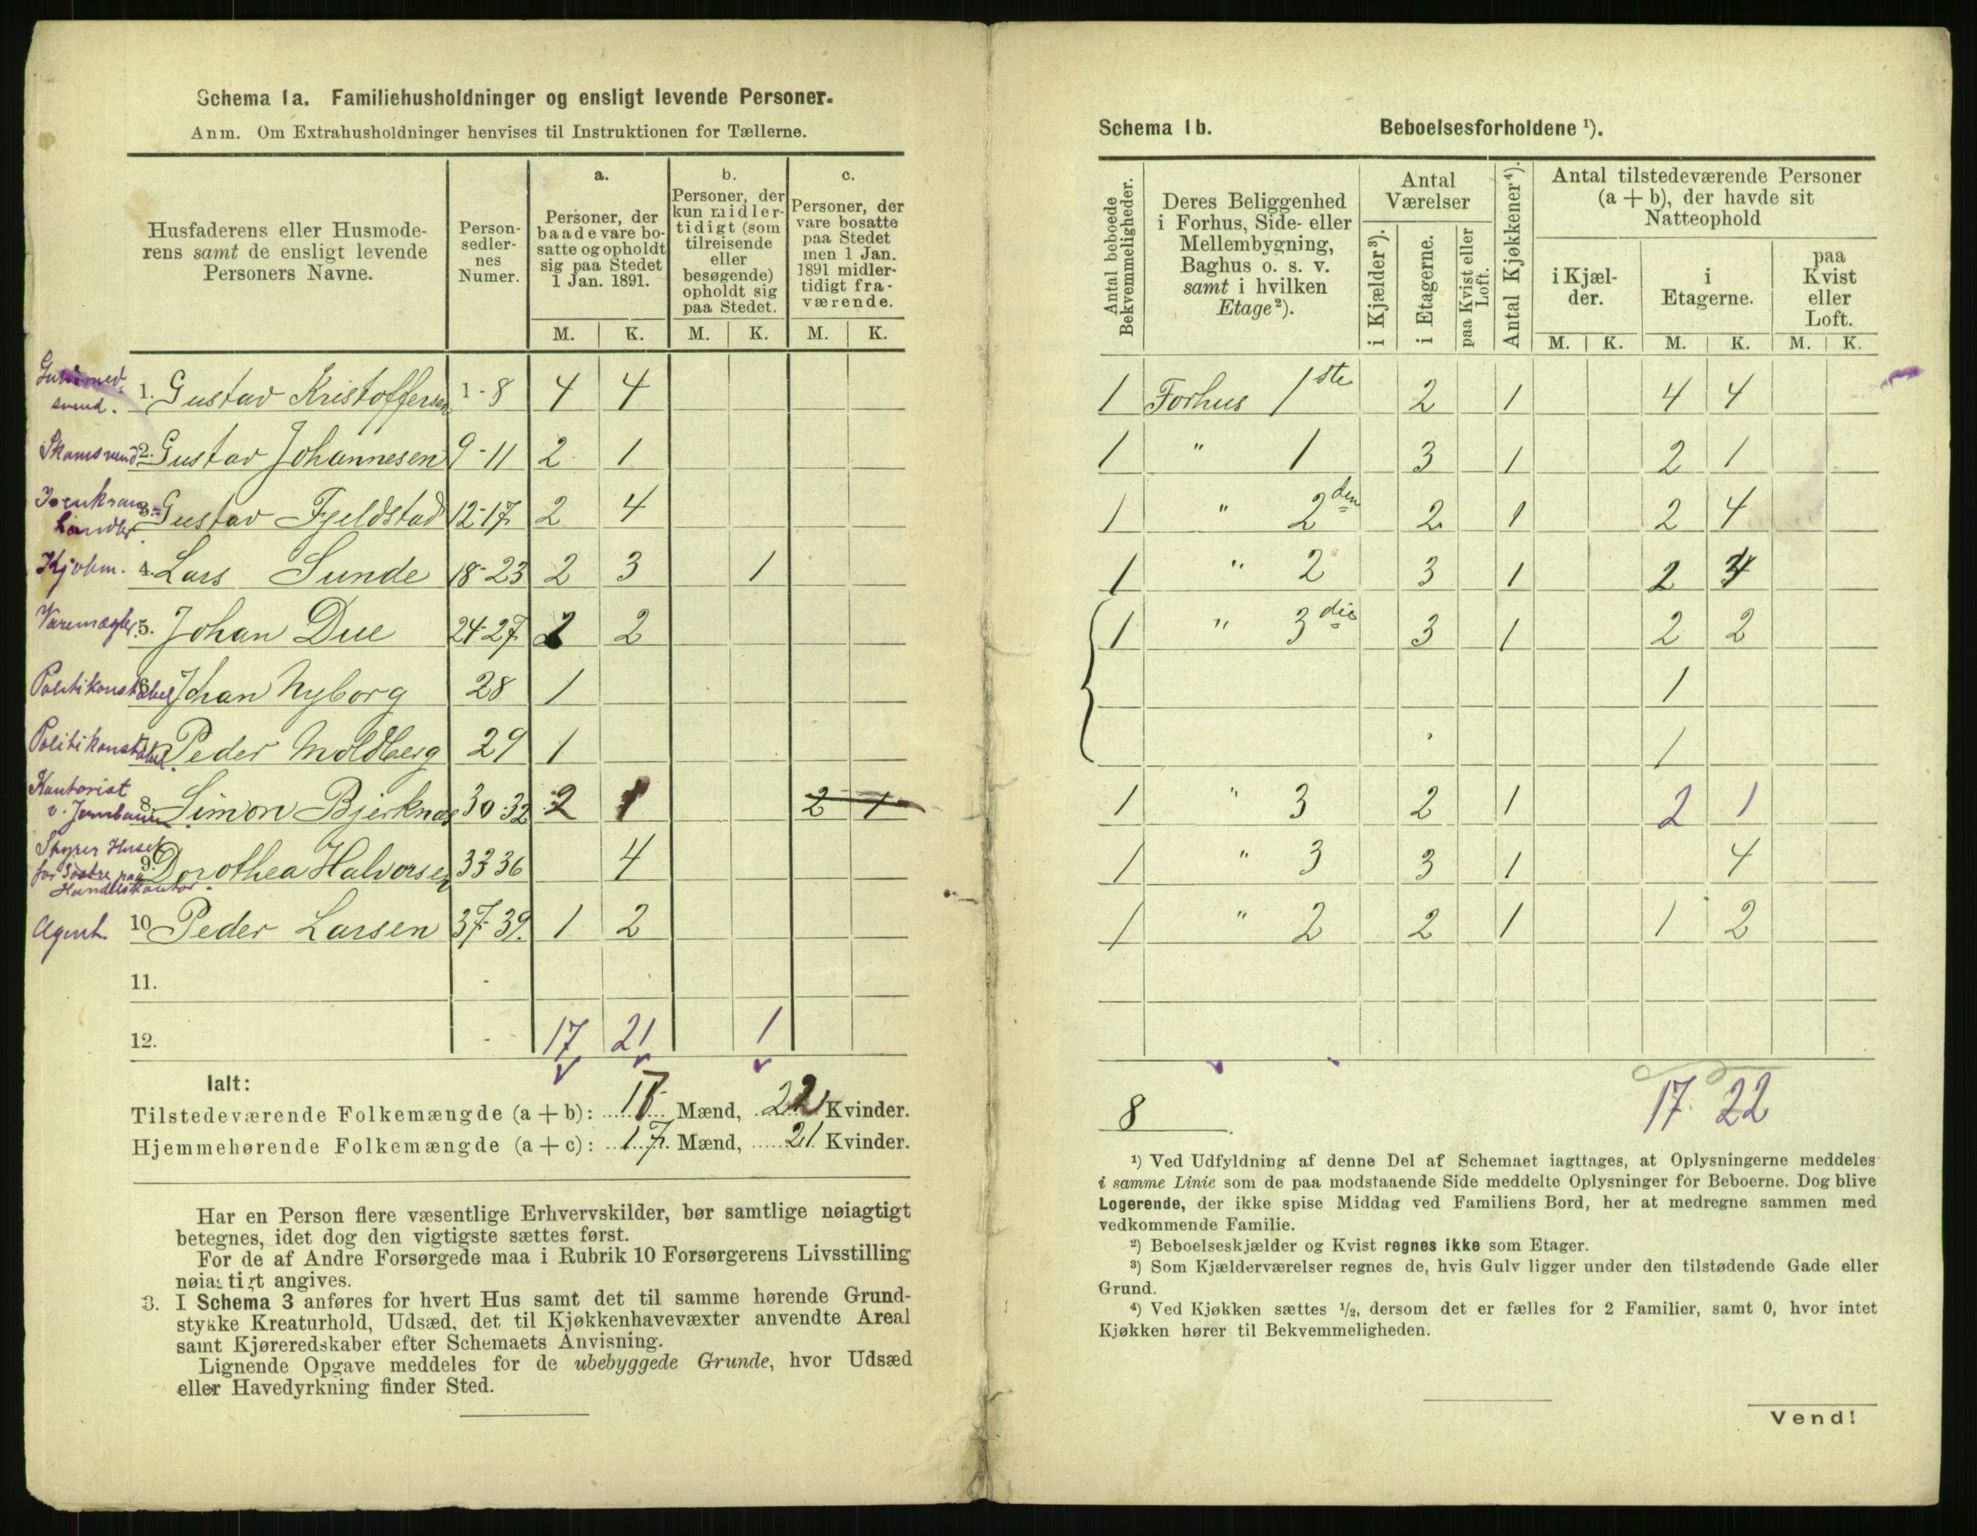 Schema 1a. Familiehusholdninger og ensligt levende Personer.
Anm. Om Extrahusholdninger henvises til Instruktionen for Tællerne.
Husfaderens eller Husmoderens samt de ensligt levende Personers Navne.
Personsedlernes Numer.
a.
Personer, der baade vare bosatte og opholdt sig paa Stedet 1 Jan. 1891.
b.
Personer, der kun midlertidigt (som tilreisende eller besøgende) opholdt sig paa Stedet.
c.
Personer, der vare bosatte paa Stedet men 1 Jan. 1891 midlertidigt fraværende.
M. K. M. K. M. K.
svend. 1. Gustav Kristoffersen 1-8 4 4
2. Gustav Johannesen 9-11 2 1
3. Gustav Fjeldstad 12-17 2 4
Kjøbm. 4. Lars Sunde 18-23 2 3 1
Varemægler 5. Johan Due 24-27 2 2
Politikonstabel 6. Johan Nyborg 28 1
Politikonstabel 7. Peder Moldberg 29 1
Kantorist v. Jernbanen 8. Simon Bjerknæs 30-32 2 1 2 1
Styrer Huset for Søstre paa Handelskontor. 9. Dorothea Halvorsen 33-36 4
Agent. 10 Peder Larsen 37-39. 1 2
11. -
12. - 17 21 1
Ialt:
Tilstedeværende Folkemængde (a + b): 17 Mænd, 22 Kvinder.
Hjemmehørende Folkemængde (a + c): 17 Mænd, 21 Kvinder.
Har en Person flere væsentlige Erhvervskilder, bør samtlige nøiagtigt
betegnes, idet dog den vigtigste sættes først.
For de af Andre Forsørgede maa i Rubrik 10 Forsørgerens Livsstilling
nøiagtigt angives.
3. I Schema 3 anføres for hvert Hus samt det til samme hørende Grund-
stykke Kreaturhold, Udsæd, det til Kjøkkenhavevæxter anvendte Areal
samt Kjøreredskaber efter Schemaets Anvisning.
Lignende Opgave meddeles for de ubebyggede Grunde, hvor Udsæd
eller Havedyrkning finder Sted.
Schema 1b. Beboelsesforholdene ¹).
Antal beboede Bekvemmeligheder.
Deres Beliggenhed i Forhus, Side- eller Mellembygning, Baghus o. s. v. samt i hvilken Etage ²).
Antal Værelser
i Kjælder ³).
i Etagerne.
paa Kvist eller Loft.
Antal Kjøkkener ⁴).
Antal tilstedeværende Personer (a + b), der havde sit Natteophold
i Kjælder.
i Etagerne.
paa Kvist eller Loft.
M. K. M. K. M. K.
1 Forhus 1ste 2 1 4 4
1 " 1 3 1 2 1
1 " 2den 2 1 2 4
1 " 2 3 1 2 4
1 " 3die 3 1 2 2
1
1
1 " 3 2 1 2 1
1 " 3 3 1 4
1 " 2 2 1 1 2
8 17 22
¹) Ved Udfyldning af denne Del af Schemaet iagttages, at Oplysningerne meddeles
i samme Linie som de paa modstaaende Side meddelte Oplysninger for Beboerne. Dog blive
Logerende, der ikke spise Middag ved Familiens Bord, her at medregne sammen med
vedkommende Familie.
²) Beboelseskjælder og Kvist regnes ikke som Etager.
³) Som Kjælderværelser regnes de, hvis Gulv ligger under den tilstødende Gade eller
Grund.
⁴) Ved Kjøkken sættes ½, dersom det er fælles for 2 Familier, samt 0, hvor intet
Kjøkken hører til Bekvemmeligheden.
Vend!